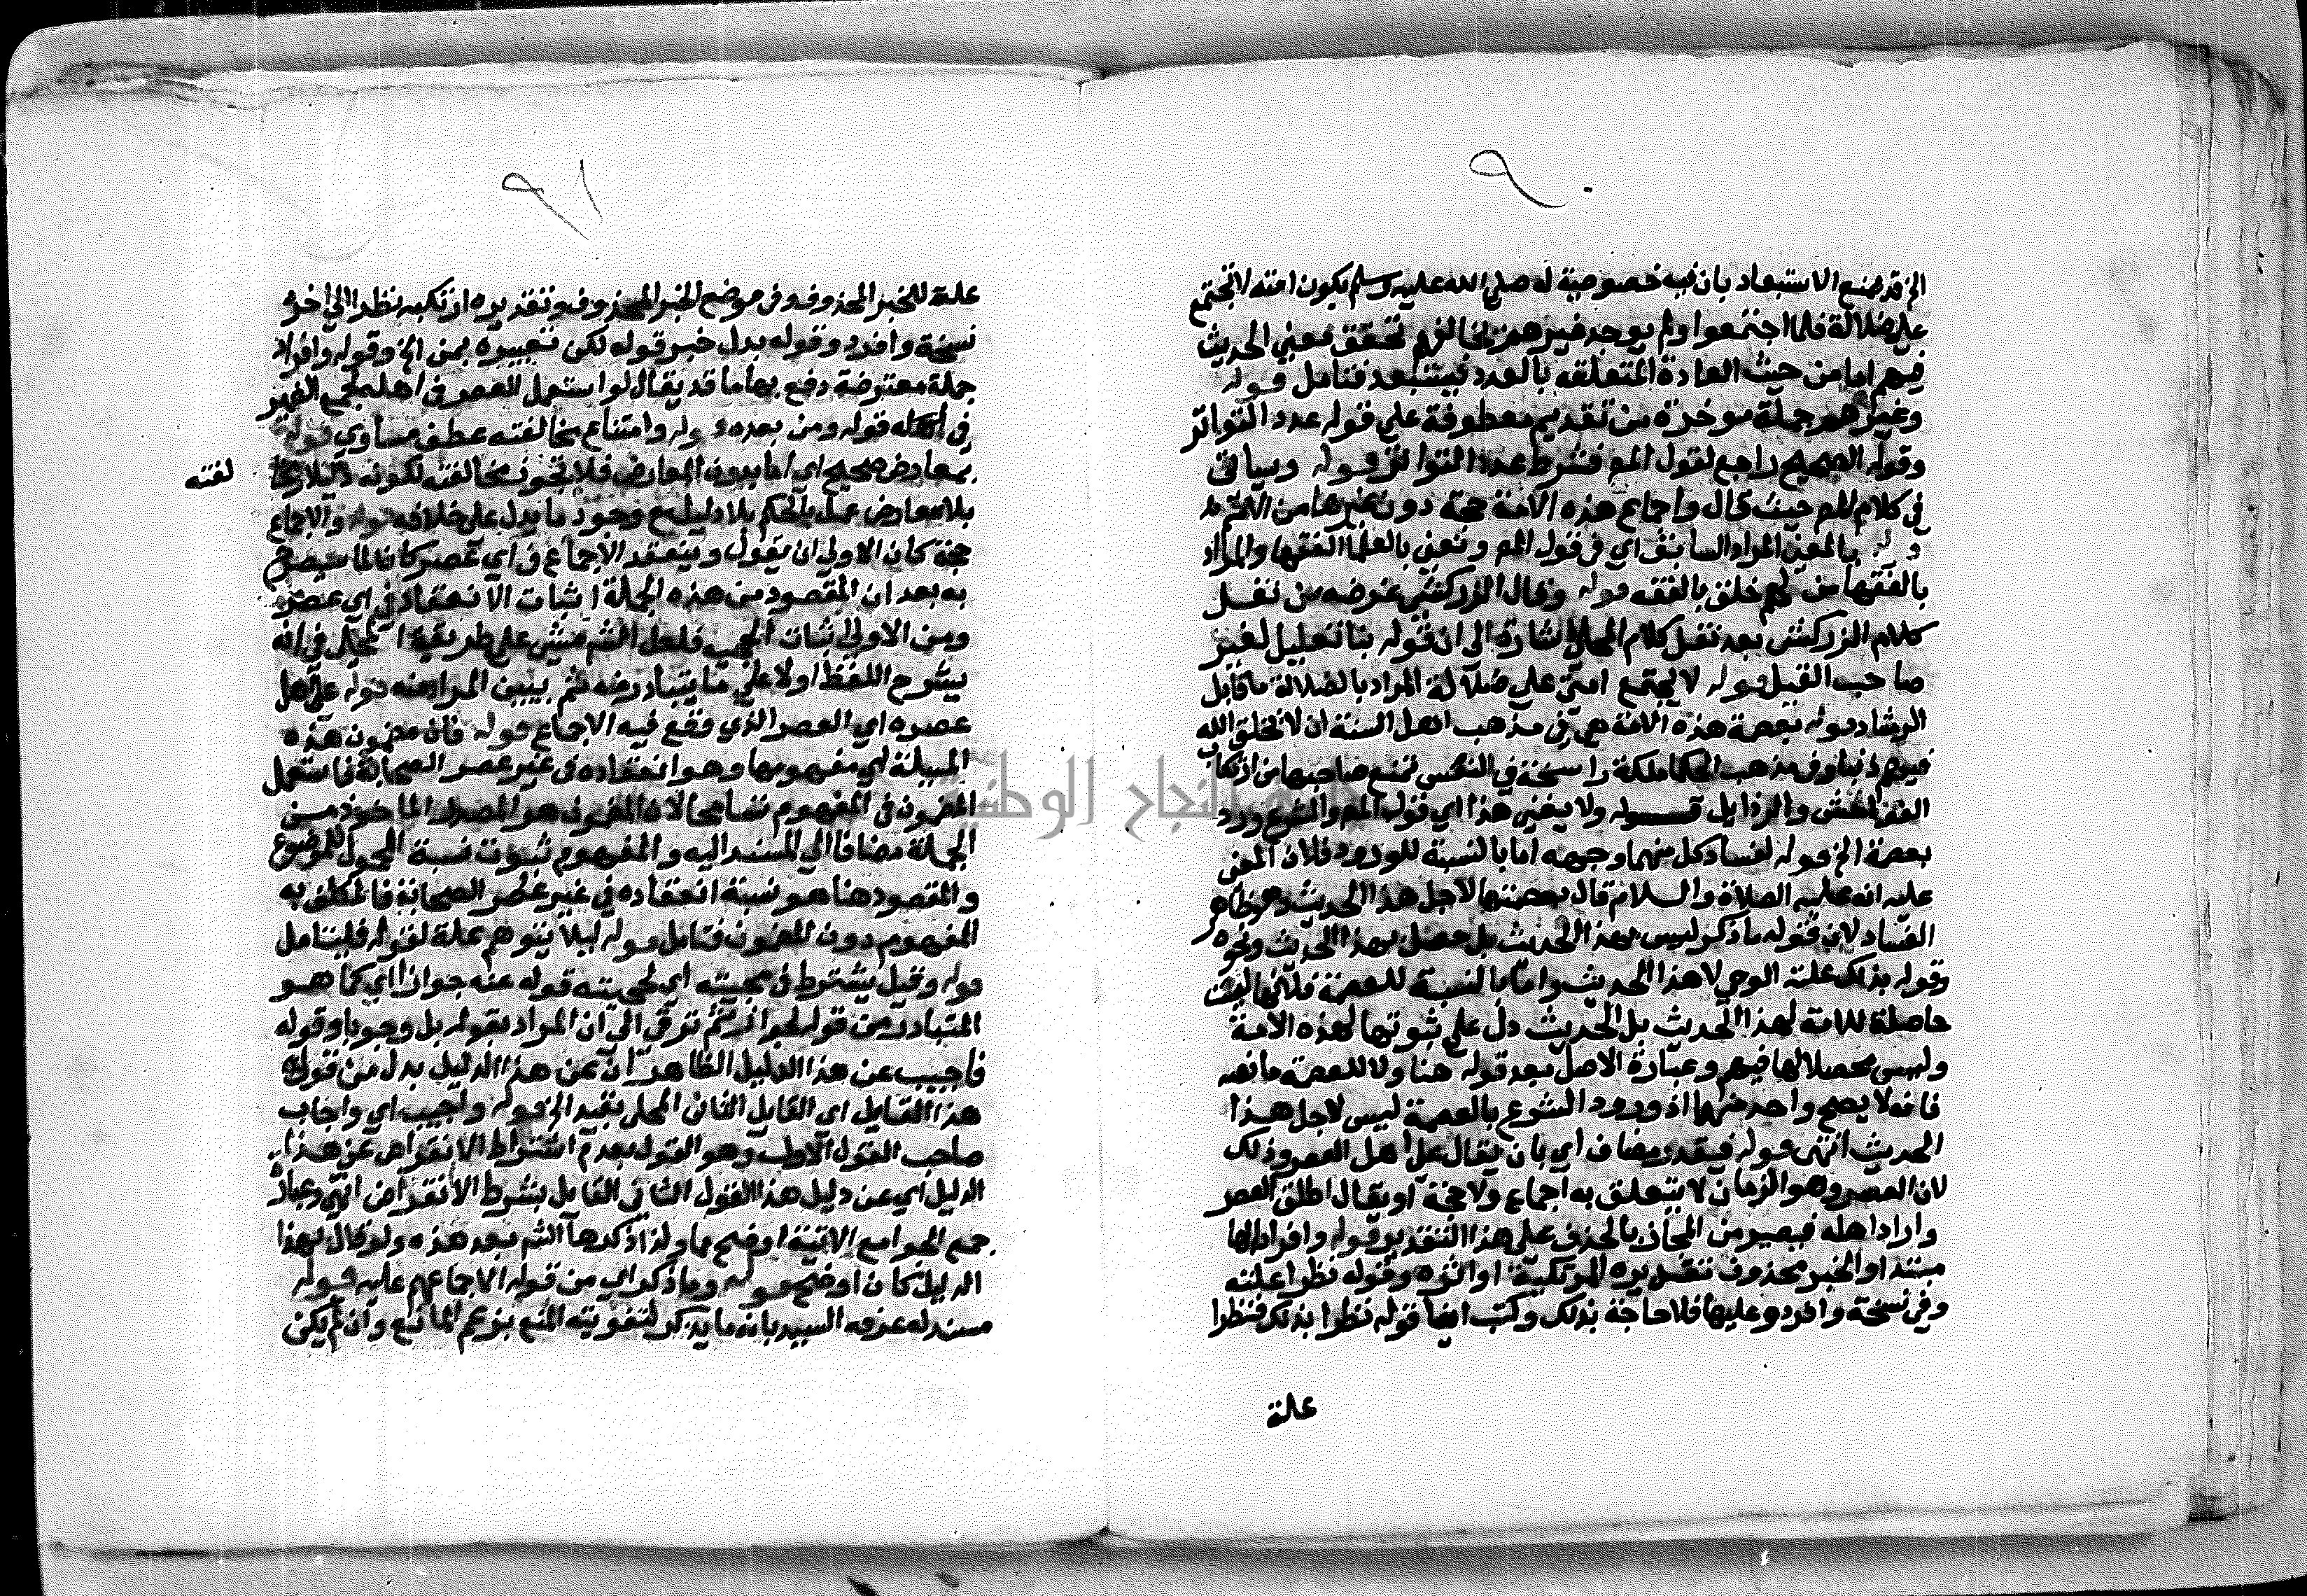 ٩٠
الخ قد يمنع الاستبعاد بان فيه خصوصية له صلي الله عليه وسلم بكون امته لا تجتمع
علي ضلالة فلما اجتمعوا ولم يوجد غيرهم يخالفهم تحقق معني الحديث
فيهم اما من حيث العادة المتعلقة بالعدد فيستبعد فتامل قوله
وغيرهم جملة موخرة من تقديم معطوفة علي قوله عدد التواتر
وقوله الصحيح راجع لقول المص فشرط عدد التواتر قوله وسياتي
في كلام المص حيث قال واجماع هذه الامة حجة دون غيرها من الامم
قوله بالمعني المراد السابق اي في قول المص ونعني بالعلما الفقها والمراد
بالفقها من لهم خلق بالفقه قوله وقال الزركشي غرضه من نقل
كلام الزركشي بعد نقل كلام المحلي اشارة الي ان قوله بنا تعليل لغير
صاحب القيل قوله لا يجتمع امتي علي ضلالة المراد بالضلالة ما قابل
الرشاد قوله بعصمة هذه الامة هي في مذهب اهل السنة ان لا يخلق الله
فيهم ذنبا وفي مذهب الحكما ملكة راسخة في النفس تمنع صاحبها من ارتكاب
الفواحش والرذايل قوله ولا يعني هذا اي قول المص والشرع ورد
بعصمة الخ قوله لفساد كل منهما وجهه اما بالنسبة للورود فلان المعني
عليه انه عليه الصلاة والسلام قال بعصمتها لاجل هذا الحديث وهو ظاهر
الفساد لان قوله ما ذكر ليس لهذا الحديث بل حصل بهذا الحديث ونحوه
وقوله بذلك علته الوحي لا هذا الحديث واما بالنسبة للعصمة فلانها ليست
حاصلة للامة لهذا الحديث بل الحديث دل علي ثبوتها لهذه الامة
وليس محصلا لها فيهم وعبارة الاصل بعد قوله هنا ولا للعصمة ما نصه
فانه لا يصح واحد منهما اذ ورود الشرع بالعصمة ليس لاجل هذا
الحديث انتهي قوله فيقدر مضاف اي بان يقال علي اهل العصر وذلك
لان العصر وهو الزمان لا يتعلق به اجماع ولا حجة او يقال اطلق العصر
واراد اهله فيصير من المجاز بالحذف علي هذا التقدير وقوله وافراد لها
مبتدا والخبر محذوف تقديره المرتكبة او اثره وقوله نظرا علته
وفي نسخة وافرده عليها فلا حاجة بذلك وكتب ايضا قوله نظرا بذلك فنظرا
علة
٩١
علة للخبر المحذوف وفي موضع الخبر المحذوف وتقديره ارتكبه نظرا الي اخره
نسخة وافرد وقوله بدل خبر قوله لكن تعبيره بمن الخ وقوله وافراد
جملة معترضة دفع بها ما قد يقال لو استعمل العصر في اهله لجمع الضمير
في اهله قوله ومن بعده قوله وامتناع مخالفته عطف مساوي قوله
بمعارض صحيح اي اما بدون المعارض فلا تجوز مخالفته لكونه دليلا مخا
لفته
بلا معارض عمل بالحكم بلا دليل مع وجود ما يدل علي خلافه قوله والاجماع
حجة كان الاولي ان يقول وينعقد الاجماع في اي عصر كان لما سيصرح
به بعد ان المقصود من هذه الجملة اثبات الانعقاد في اي عصر
ومن الاولي اثبات الحجية فلعل الشم مشي علي طريقة المحلي في انه
يشرح اللفظ اولا علي ما يتبادر منه ثم يبين المراد منه قوله علي اهل
عصره اي العصر الذي وقع فيه الاجماع قوله فان مضمون هذه
المبينة اي مفهومها وهو انعقاده في غير عصر الصحابة فاستعمل
المضمون في المفهوم تسامحا لان المضمون هو المصدر الماخوذ من
الجملة مضافا الي المسند اليه والمفهوم ثبوت نسبة المحمول للموضوع
والمقصود هنا هو نسبة انعقاده في غير عصر الصحابة فالمكلف به
المفهوم دون المضمون فتامل قوله ليلا يتوهم علة لقوله فليتامل
قوله وقيل يشترط في حجيته اي لحجيته قوله عنه جوازا اي كما هو
المتبادر من قوله لجواز ثم ترقي الي ان المراد بقوله بل وجوبا وقوله
فاجيب عن هذا الدليل الظاهر ان عن هذا الدليل بدل من قوله
هذا القايل اي القايل الثاني المحلي بقيد الخ قوله واجيب اي واجاب
صاحب القول الاول وهو القول بعدم اشتراط الانقراض عن هذا
الدليل اي عن دليل هذا القول الثاني القايل بشرط الانقراض انتهي وعبارة
جمع الجوامع الاتية اوضح مما ولذا ذكرها الشم بعد هذه ولو قال بهذا
الدليل كان اوضح قوله وما ذكر اي من قوله الاجماعهم عليه قوله
مسند له عرفه السيد بانه ما يذكر لتقوية المنع بزعم المانع وان لم يكن